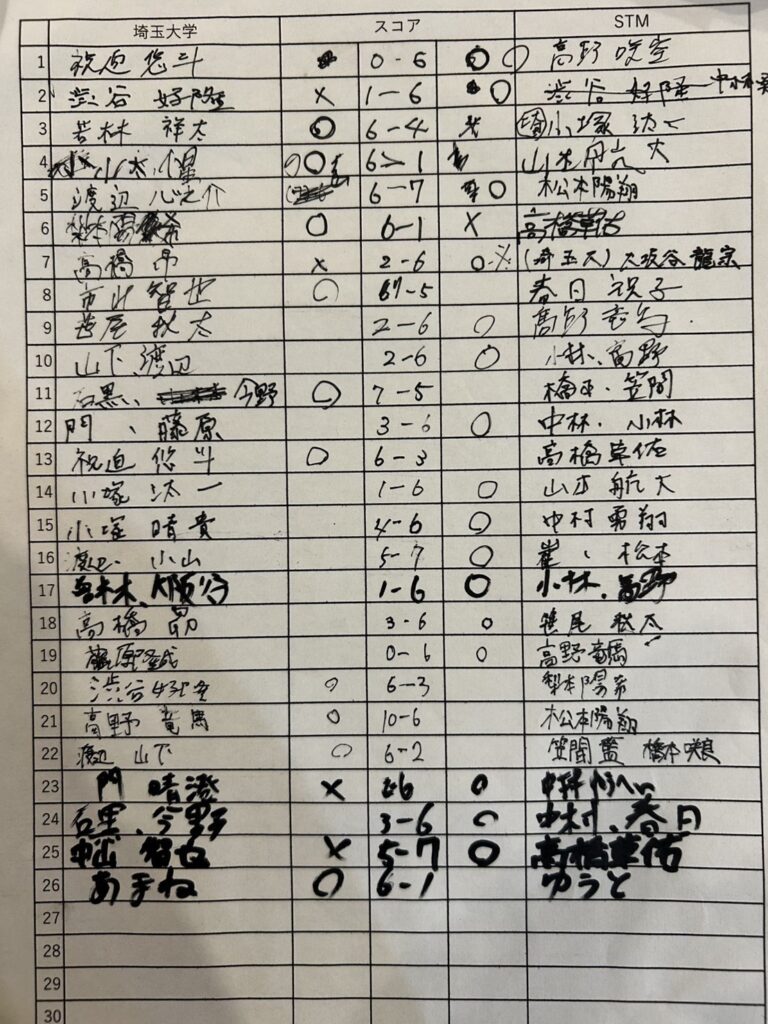 埼玉大学 スコア STM
1 祝迫 悠斗 0-6 ○ 高野 咲空
2 渋谷 好隆 × 1-6 ○ 渋谷 好隆
3 若林 祥太 ○ 6-4 × 小塚 汰一
4 小太 ○ 6-1 山本航大
5 渡辺 心之介 6-7 ○ 松本陽翔
6 ○ 6-1 × 高橋草佑
7 高橋 昂 × 2-6 ○ (埼玉大) 大坂谷 龍宗
8 市川 智也 ○ 7-5 春日
9 笹尾 秋太 2-6 ○ 高野
10 山下、渡辺 2-6 ○ 小林、高野
11 石黒、今野 ○ 7-5 橋本・笠間
12 門、藤原 3-6 ○ 中林・小林
13 祝迫 悠斗 ○ 6-3 高橋草佑
14 小塚 汰一 1-6 ○ 山本 航大
15 小塚 晴貴 4-6 ○ 中村 勇翔
16 渡辺、小山 5-7 ○ 崔、松本
17 1-6 ○ 小林、高野
18 高橋 昂 3-6 ○ 笹尾 秋太
19 藤原 0-6 ○ 高野竜馬
20 渋谷 ○ 6-3 梨本陽希
21 高野 竜馬 ○ 10-6 松本陽翔
22 渡辺 山下 ○ 6-2 笠間 藍 橋本
23 門 晴澄 × 2-6 ○
24 石黒、今野 3-6 ○ 中村、春日
25 智也 × 5-7 ○ 高橋草佑
26 あまね ○ 6-1 ゆうと
27
28
29
30